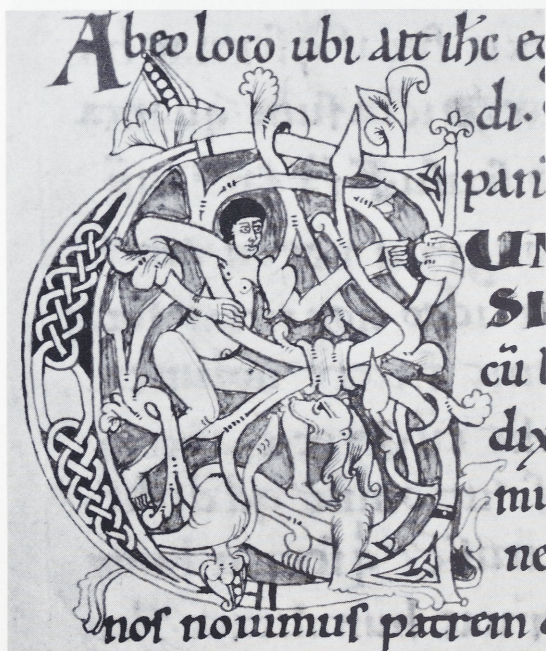 Abeo loco ubi ait ihc
di.
pani
UN
SI
cū
dix
mu
ne
nos nouimus patrem